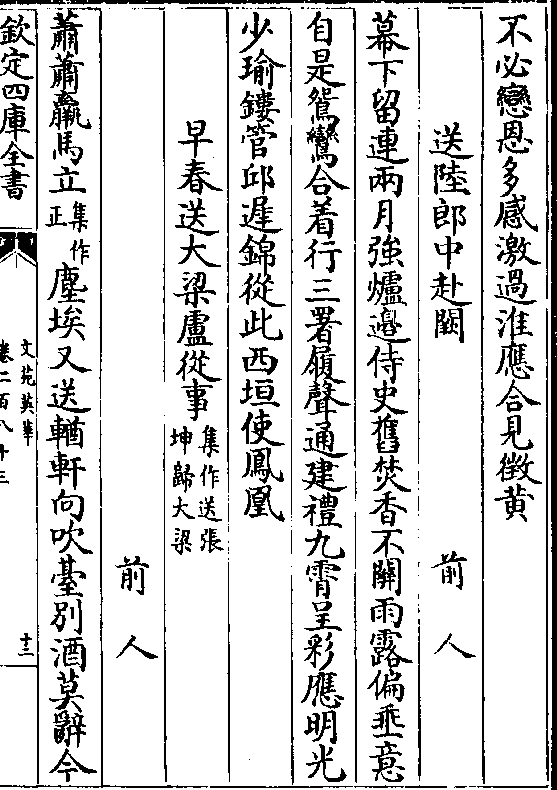 不必戀恩多感激過淮應合見徵黄
送陸郎中赴闕
前人
幕下留連兩月強爐邉侍史舊焚香不關雨露偏垂意
自是鴛鸞合着行三署履聲通建禮九霄呈彩應明光
少瑜鏤管邱遲錦從此西垣使鳳凰
早春送大梁盧從事集作送張坤歸大梁
前人
蕭蕭羸馬立集作正塵埃又送輶軒向吹臺別酒莫辭今
欽定四庫全書
文苑英華
卷二百八十三
十三